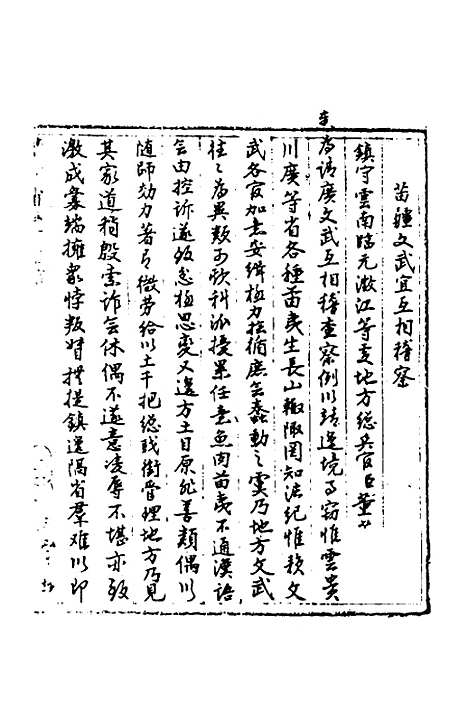 苗疆文武宜互相稽察
鎮守雲南臨元澂江等處地方總兵官臣董
奏為請廣文武互相稽查察例以靖邊境事竊惟雲貴
川廣等省各種苗夷生長山陬罔知法紀惟賴文
武各官加意安緝極力拊循庶無蠢動之虞乃地方文武
往々為異類可欺科派擾累任意魚肉苗夷不通漢語
無由控訴遂致忿極思變又邊方土目原非善類偶以
随師効力著有微勞給以土千把總職銜管理地方乃見
其家道稍殷索詐無休偶不遂意凌辱不堪亦致
激成釁端擁眾悖叛提鎮邊隅省羣難以即